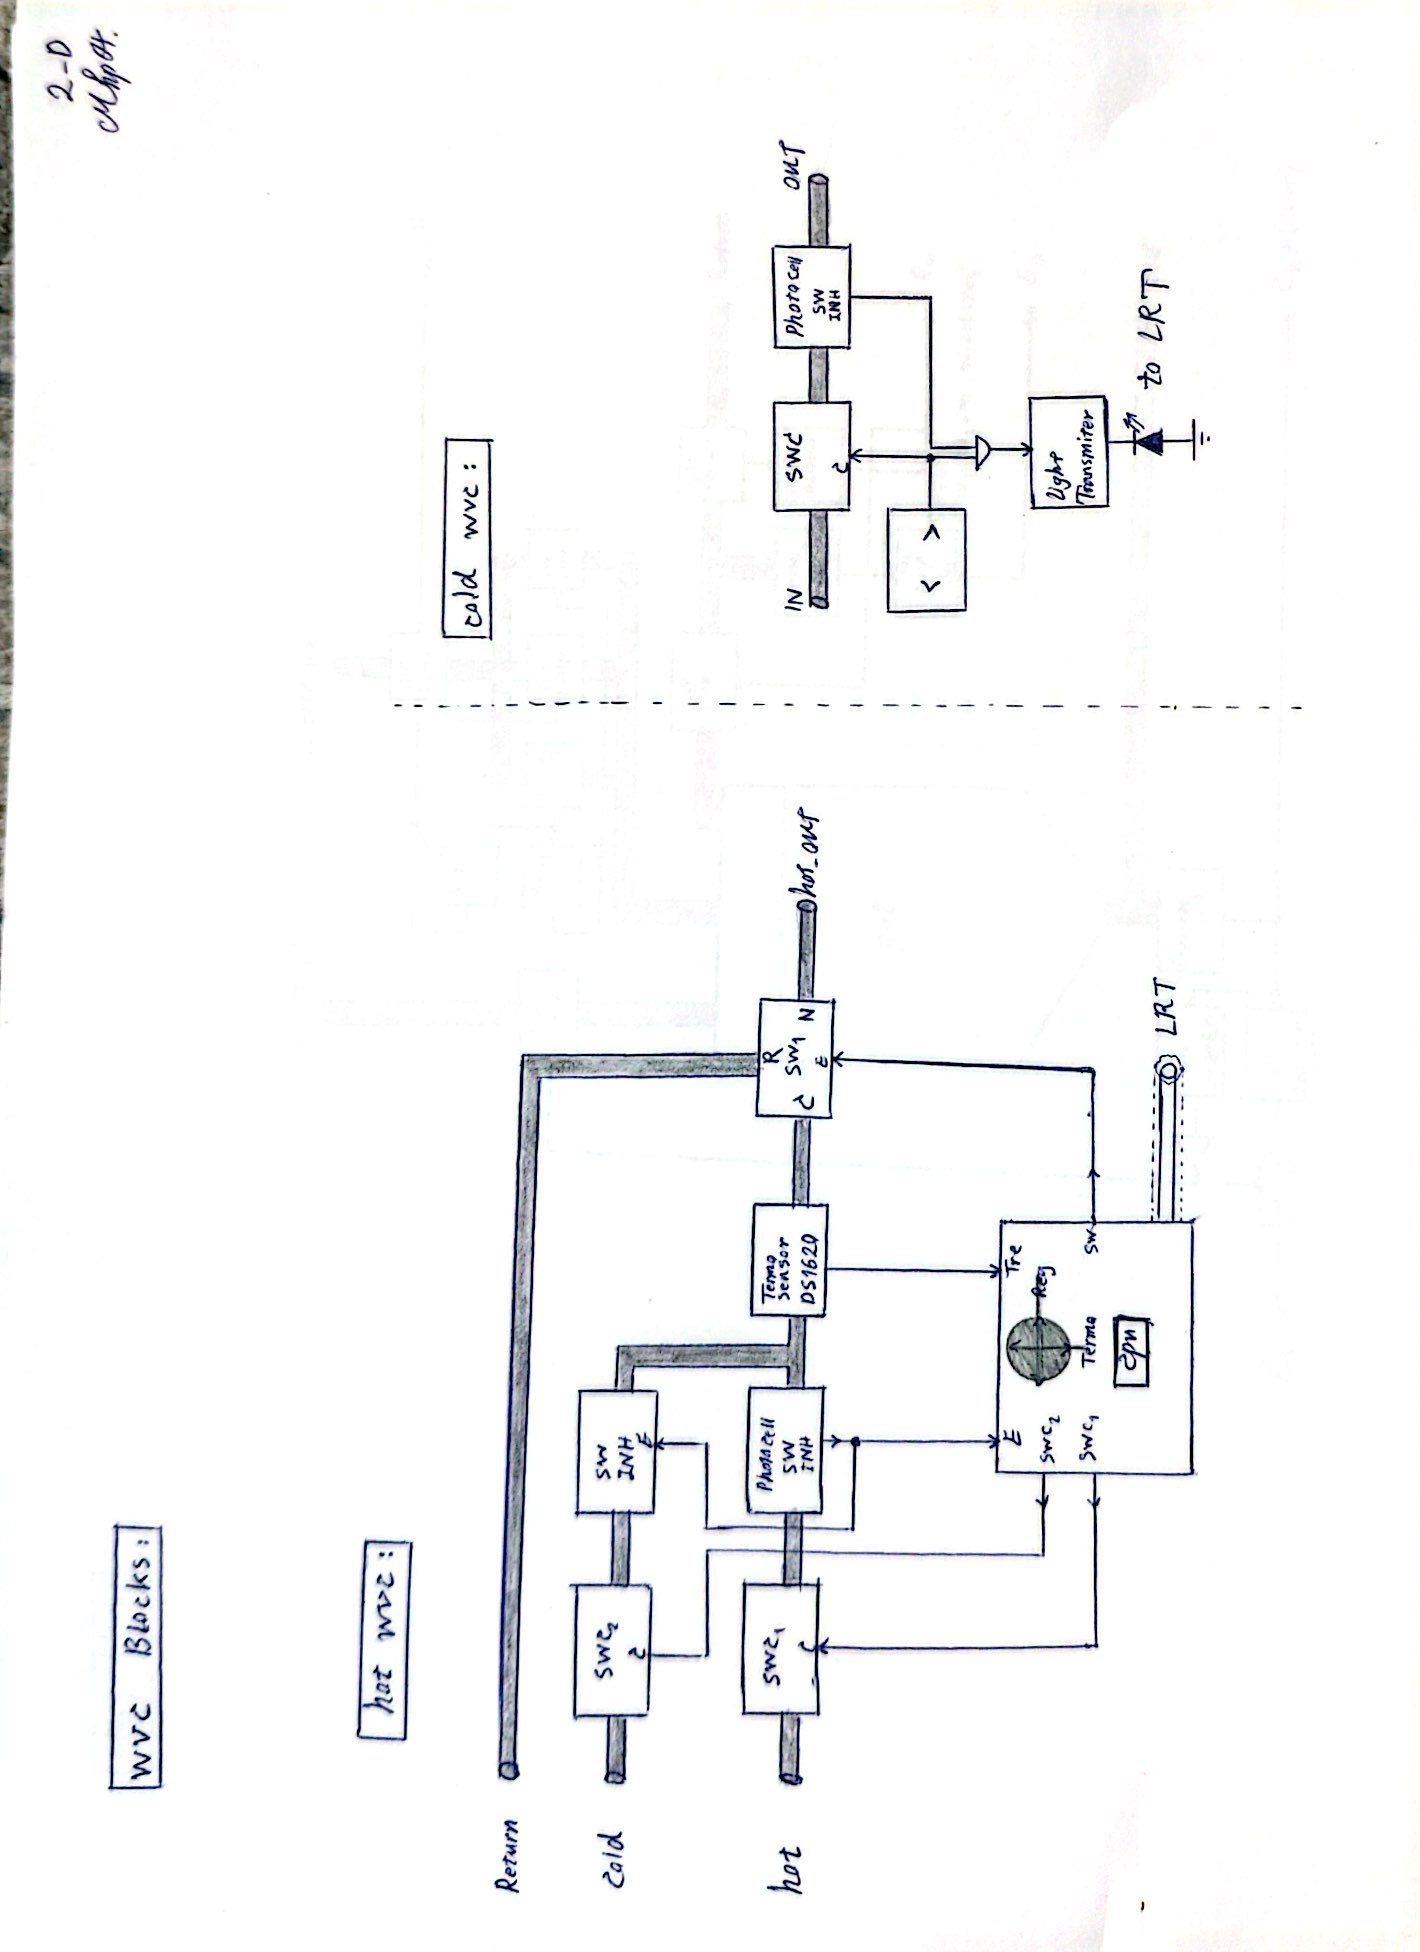 2-D
WVC Blocks:
hot WVC:
cold WVC:
Return
Cold
SWC2
C
SW
INH
E
hot
SWC1
C
Photocell
SW
INH
Termo
Sensor
DS1620
R
C SW1 N
E
hot_out
E
Tre
SWC2
Reg
SWC1
Termo
SW
Cpu
LRT
IN
SWC
C
Photocell
SW
INH
OUT
< >
Light
Transmiter
to LRT